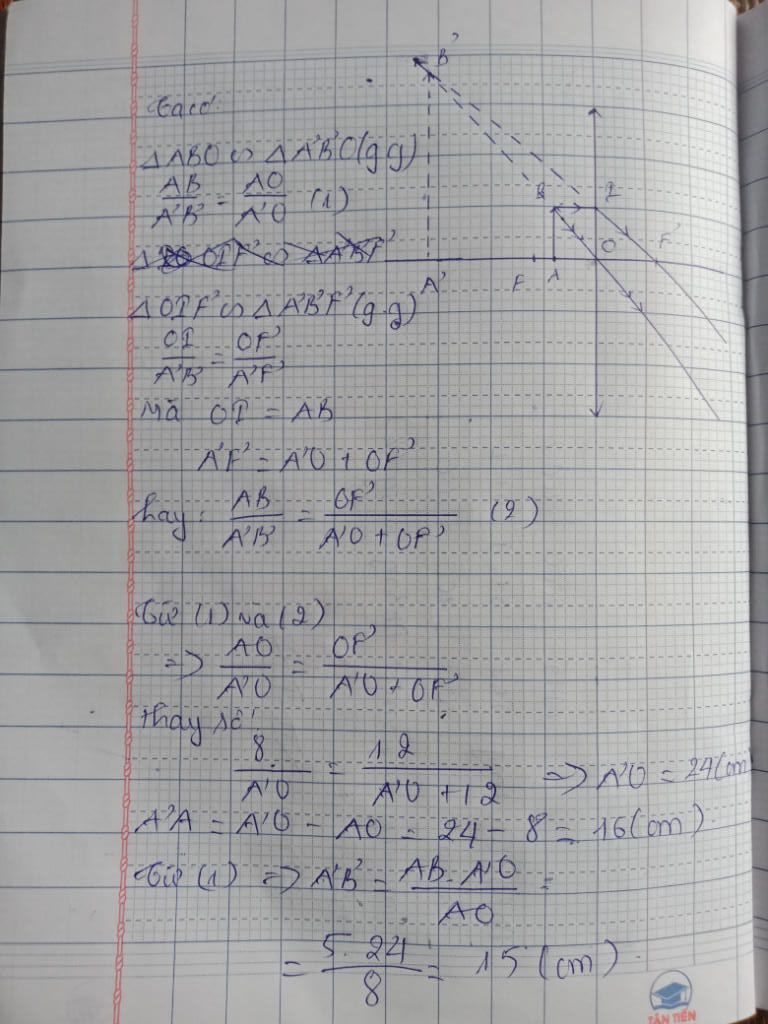 Ta có:
ΔABO ∽ ΔA'B'O (g.g)
AB/A'B' = AO/A'O (1)
ΔOIF' ∽ ΔA'B'F' (g.g)
OI/A'B' = OF'/A'F'
Mà OI = AB
A'F' = A'O + OF'
hay: AB/A'B' = OF'/(A'O + OF') (2)
Từ (1) và (2)
=> AO/A'O = OF'/(A'O + OF')
thay số:
8/A'O = 12/(A'O + 12) => A'O = 24(cm)
A'A = A'O - AO = 24 - 8 = 16(cm)
Từ (1) => A'B' = AB.A'O/AO =
= 5.24/8 = 15 (cm).
B'
B
I
O
F'
A'
F
A
TÂN TIẾN